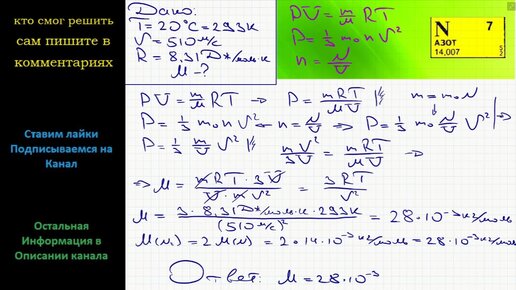 кто смог решить
сам пишите в
комментариях
Ставим лайки
Подписываемся на
Канал
Остальная
Информация в
Описании канала
Дано:
T = 20°C = 293 К
V = 510 м/с
R = 8.31 Дж/моль·К
M - ?
PV = m/M RT
P = 1/3 m₀ n V²
n = N/V
N 7
АЗОТ
14,007
PV = m/M RT → P = mRT/MV m = m₀N
P = 1/3 m₀ n V² ← n = N/V ⇒ P = 1/3 m₀ N/V V²
P = 1/3 m/V V² mV²/3V = mRT/MV →
⇒ M = mRT·3V/V·mV² = 3RT/V²
M = 3·8.31 Дж/моль·К·293К/(510 м/с)² = 28·10⁻³ кг/моль
M(N₂) = 2M(N) = 2·14·10⁻³ кг/моль = 28·10⁻³ кг/моль
Ответ: M = 28·10⁻³